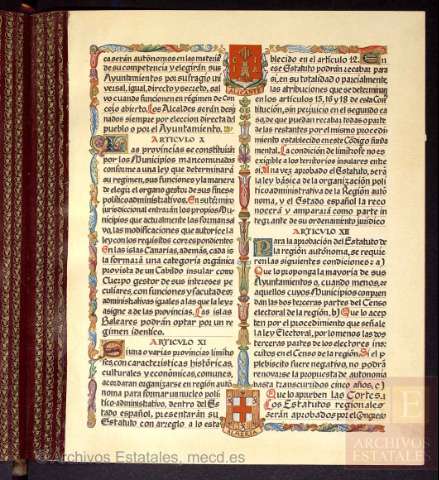 cas serán autónomos en las materias
de su competencia y elegirán sus
Ayuntamientos por sufragio uni
versal, igual, directo y secreto, sal
vo cuando funcionen en régimen de Con
cejo abierto. Los Alcaldes serán desig
nados siempre por elección directa del
pueblo o por el Ayuntamiento.
ARTICULO X
Las provincias se constituirán
por los Municipios mancomunados
conforme a una ley que determinará
su régimen, sus funciones y la manera
de elegir el órgano gestor de sus fines
político administrativos. En su término
jurisdiccional entrarán los propios Muni
cipios que actualmente las forman sal
vo, las modificaciones que autorice la
ley con los requisitos correspondientes
En las islas Canarias, además, cada isla
formará una categoría orgánica
provista de un Cabildo insular como
Cuerpo gestor de sus intereses pe
culiares, con funciones y facultades
administrativas iguales a las que la ley
asigne a las provincias. Las islas
Baleares podrán optar por un ré
gimen idéntico.
ARTICULO XI
Si una o varias provincias limítro
fes, con características históricas,
culturales y económicas, comunes,
acordaran organizarse en región autó
noma para formar un núcleo político
administrativo, dentro del Es
tado español, presentarán su
Estatuto con arreglo a lo esta
ALICANTE
ALMERIA
blecido en el artículo 12. En
ese Estatuto podrán recabar para
sí, en su totalidad o parcialmente,
las atribuciones que se determinan
en los artículos 15, 16 y 18 de esta Cons
titución, sin perjuicio en el segundo ca
so, de que puedan recabar todas o parte
de las restantes por el mismo procedi
miento establecido en este Código funda
mental. La condición de limítrofe no es
exigible a los territorios insulares entre
sí. Una vez aprobado el Estatuto, será
la ley básica de la organización polí
tico administrativa de la Región autó
noma, y el Estado español la reco
nocerá y amparará como parte in
tegrante de su ordenamiento jurídico
ARTICULO XII
Para la aprobación del Estatuto de
la región autónoma, se requie
ren las siguientes condiciones: a)
Que lo proponga la mayoría de sus
Ayuntamientos o, cuando menos, de
aquellos cuyos Municipios compren
dan las dos terceras partes del Censo
electoral de la región. b) Que lo acep
ten por el procedimiento que señale
la ley Electoral, por lo menos las dos
terceras partes de los electores ins
critos en el Censo de la región. Si el
plebiscito fuere negativo, no podrá
renovarse la propuesta de autonomía
hasta transcurridos cinco años, c)
Que lo aprueben las Cortes.
Los Estatutos regionales
serán aprobados por el Congreso
Archivos Estatales, mecd.es
E
ARCHIVOS
ESTATALES